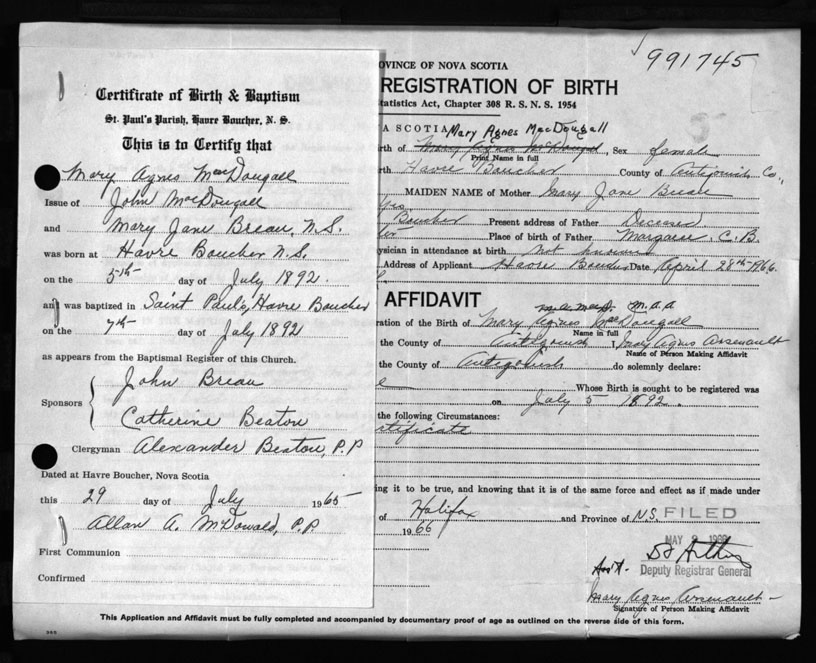 991745
OVINCE OF NOVA SCOTIA
REGISTRATION OF BIRTH
tatistics Act, Chapter 308 R. S. N. S. 1954
A SCOTIA Mary Agnes MacDougall
irth of Mary Agnes McDougal, Sex female
Print Name in full
rth Havre Boucher County of Antigonish Co.,
MAIDEN NAME of Mother Mary Jane Breau
yes
Boucher Present address of Father Deceased
Place of birth of Father Margaree C.B.
ysician in attendance at birth not known
Address of Applicant Havre Boucher Date April 28th 1966
AFFIDAVIT
m.a.a
ration of the Birth of Mary Agnes MacDougall
Name in full
the County of Antigonish I, Mary Agnes Arsenault
Name of Person Making Affidavit
the County of Antigonish do solemnly declare:
e Whose Birth is sought to be registered was
on July 5 1892.
the following Circumstances:
rtificate
ing it to be true, and knowing that it is of the same force and effect as if made under
of Halifax and Province of N.S. FILED
1966
MAY
Asst. Deputy Registrar General
Mary Agnes Arsenault
Signature of Person Making Affidavit
Certificate of Birth & Baptism
St. Paul's Parish, Havre Boucher, N. S.
This is to Certify that
Mary Agnes MacDougall
Issue of John McDougall
and Mary Jane Breau, N.S.
was born at Havre Boucher N.S.
on the 5th day of July 1892.
and was baptized in Saint Paul's, Havre Boucher
on the 7th day of July 1892
as appears from the Baptismal Register of this Church.
John Breau
Sponsors
Catherine Beaton
Clergyman Alexander Beaton, P.P
Dated at Havre Boucher, Nova Scotia
this 29 day of July 1965
Allan A. McDonald, P.P.
First Communion
Confirmed
This Application and Affidavit must be fully completed and accompanied by documentary proof of age as outlined on the reverse side of this form.